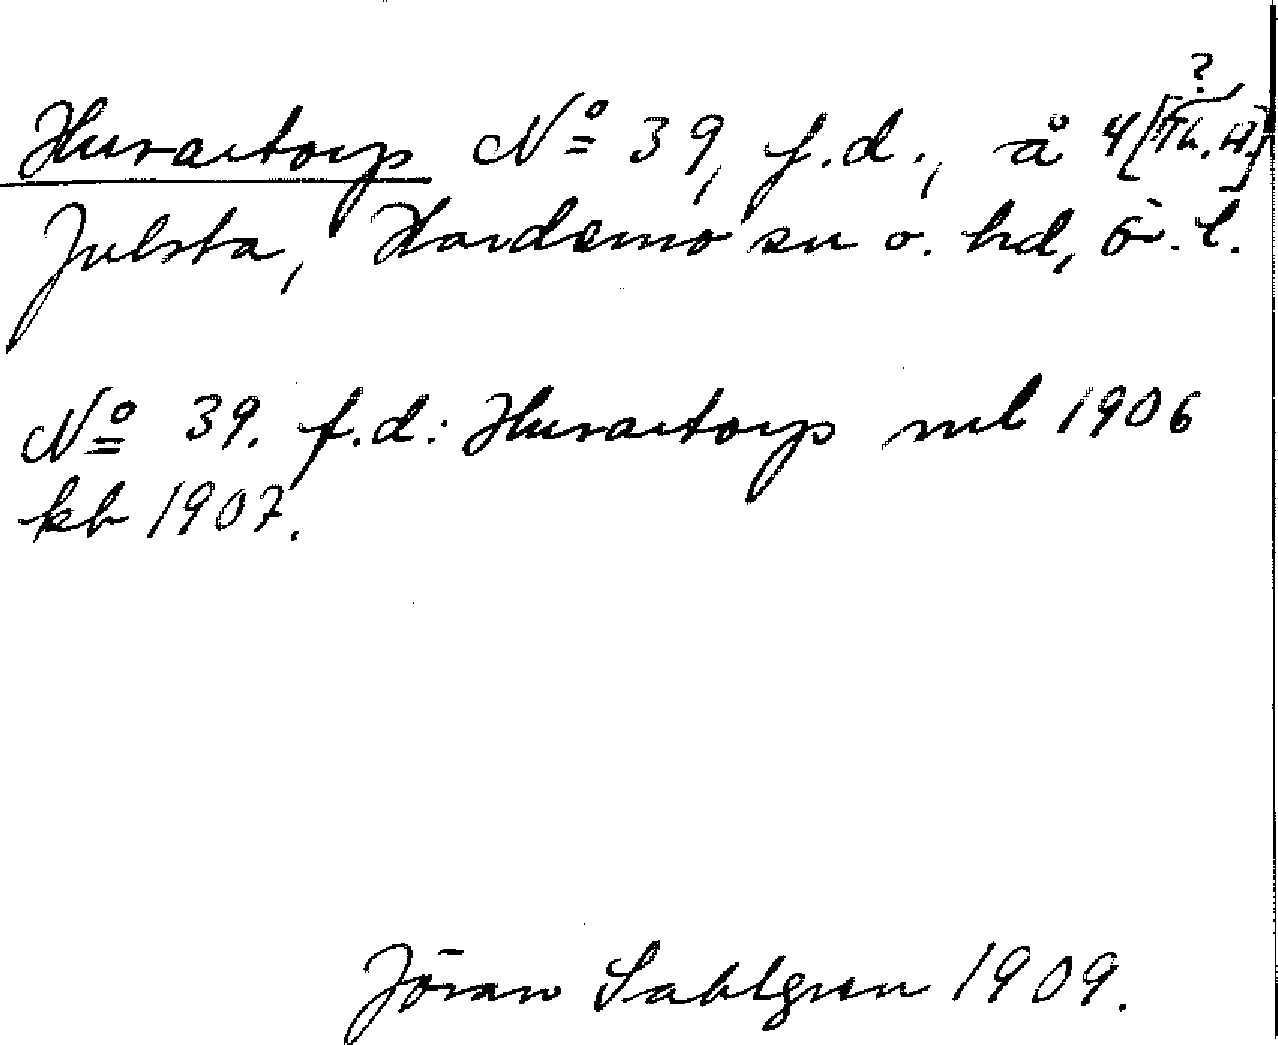 Hurartorp Nº 39, f.d., å 4
Julsta, Hardemo sn o. hd, Ör. l.
Nº 39. f.d.: Hurartorp ml 1906
kb 1907.
Jöran Sahlgren 1909.